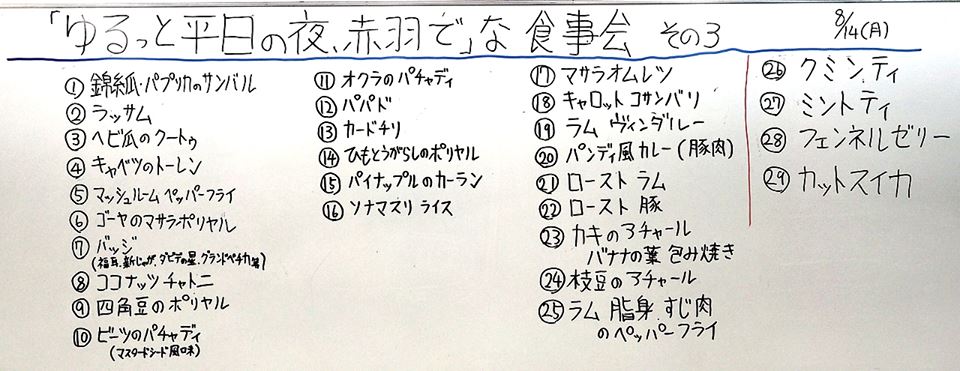 「ゆるっと平日の夜、赤羽で」な 食事会 その3
8/14(月)
① 錦糸瓜・パプリカのサンバル
② ラッサム
③ ヘビ瓜のクートゥ
④ キャベツのトーレン
⑤ マッシュルーム ペッパーフライ
⑥ ゴーヤのマサラポリヤル
⑦ バッジ
(福耳、新じゃが、ダビデの星、グランドペチカ等)
⑧ ココナッツ チャトニ
⑨ 四角豆のポリヤル
⑩ ビーツのパチャディ
(マスタードシード風味)
⑪ オクラのパチャディ
⑫ パパド
⑬ カードチリ
⑭ ひもとうがらしのポリヤル
⑮ パイナップルのカーラン
⑯ ソナマスリ ライス
⑰ マサラオムレツ
⑱ キャロット コサンバリ
⑲ ラム ヴィンダルー
⑳ パンディ風カレー(豚肉)
㉑ ロースト ラム
㉒ ロースト 豚
㉓ カキのアチャール
バナナの葉 包み焼き
㉔ 枝豆のアチャール
㉕ ラム 脂身、すじ肉
のペッパーフライ
㉖ クミン ティ
㉗ ミントティ
㉘ フェンネルゼリー
㉙ カットスイカ